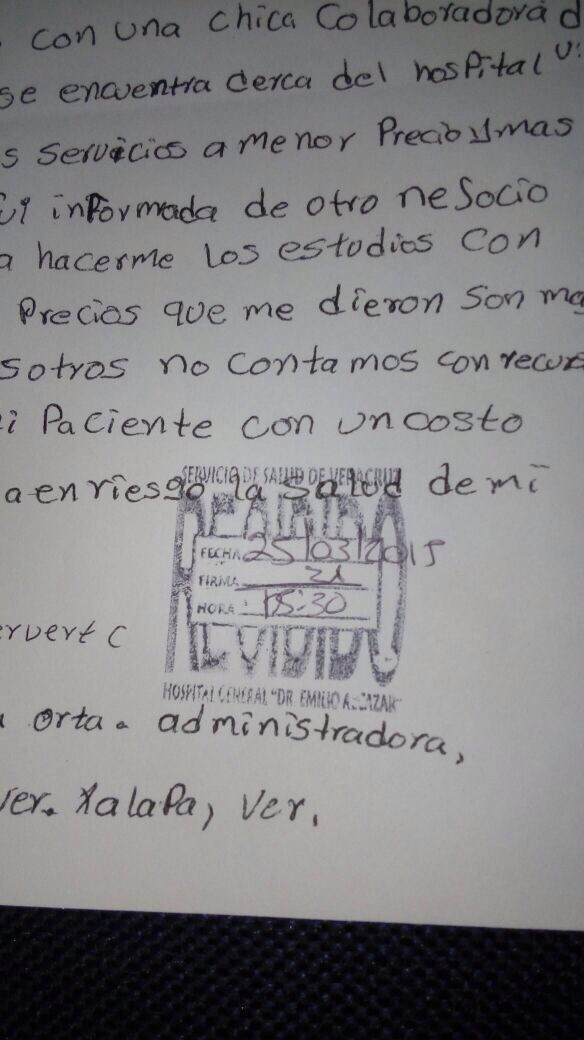 con una chica Colaboradora d
se encuentra cerca del hospital
s servicios a menor Precio y mas
informada de otro nesocio
a hacerme los estudios con
Precios que me dieron son ma
sotros no contamos con recurs
i Paciente con un costo
a en riesgo la salud de mi
SERVICIO DE SALUD DE VERACRUZ
FECHA 25/03/2015
FIRMA
HORA: 15:30
RECIBIDO
HOSPITAL GENERAL "DR. EMILIO ALCAZAR"
ervert C
orta. administradora,
ver. Xalapa, Ver.